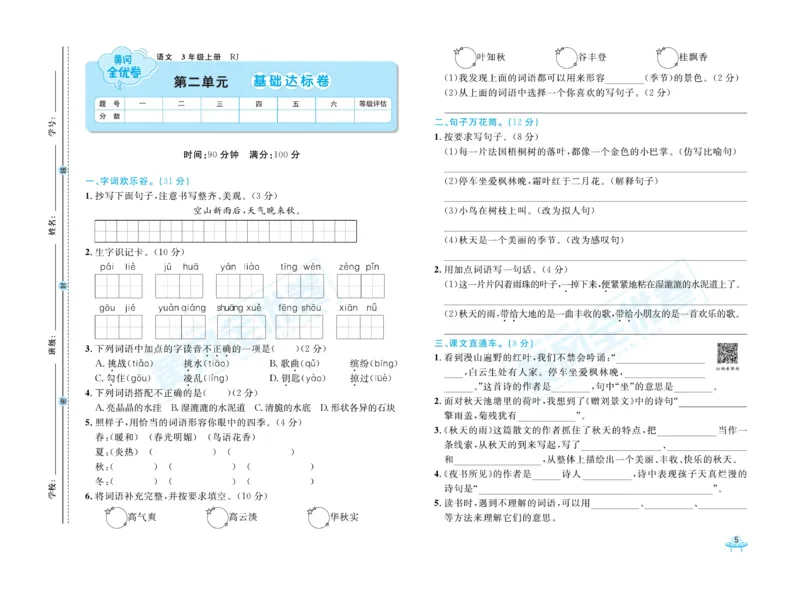 黄冈
全优卷
语文 3年级上册 RJ
第二单元 基础达标卷
题号 一 二 三 四 五 六 等级评估
分数
时间:90分钟 满分:100分
学号:
姓名:
班级:
学校:
一、字词欢乐谷。(31分)
1.抄写下面句子,注意书写整齐、美观。(3分)
空山新雨后,天气晚来秋。
2.生字识记卡。(10分)
pái liè jú huā yán liào tīng wén zēng pǐn
gōu jié yuán qiáng shuāng xuě fēng shōu xiān nǚ
3.下列词语中加点的字读音不正确的一项是( )(2分)
A.挑战(tiǎo) 挑水(tiāo) B.歌曲(qǔ) 缤纷(bīng)
C.勾住(gōu) 凌乱(líng) D.钥匙(yào) 掠过(lüè)
4.下列词语搭配不正确的是( )(2分)
A.亮晶晶的水洼 B.湿漉漉的水泥道 C.清脆的水底 D.形状各异的石块
5.照样子,用恰当的词语形容你眼中的四季。(4分)
春:(暖和) (春光明媚) (鸟语花香)
夏:(炎热) ( ) ( )
秋:( ) ( ) ( )
冬:( ) ( ) ( )
6.将词语补充完整,并按要求填空。(10分)
高气爽 高云淡 华秋实
叶知秋 谷丰登 桂飘香
(1)我发现上面的词语都可以用来形容______(季节)的景色。(2分)
(2)从上面的词语中选择一个你喜欢的写句子。(2分)
二、句子万花筒。(12分)
1.按要求写句子。(8分)
(1)每一片法国梧桐树的落叶,都像一个金色的小巴掌。(仿写比喻句)
(2)停车坐爱枫林晚,霜叶红于二月花。(解释句子)
(3)小鸟在树枝上叫。(改为拟人句)
(4)秋天是一个美丽的季节。(改为感叹句)
2.用加点词语写一句话。(4分)
(1)这一片片闪着雨珠的叶子,一掉下来,便紧紧地粘在湿漉漉的水泥道上了。
(2)秋天的雨,带给大地的是一曲丰收的歌,带给小朋友的是一首欢乐的歌。
三、课文直通车。(8分)
1.看到漫山遍野的红叶,我们不禁会吟诵:“______
______,白云生处有人家。停车坐爱枫林晚,______
______。”这首诗的作者是______,句中“坐”的意思是______。
2.面对秋天池塘里的荷叶,我想到了《赠刘景文》中的诗句“______
擎雨盖,菊残犹有______”。
3.《秋天的雨》这篇散文的作者抓住了秋天的特点,把______当作一
条线索,从秋天的到来写起,写了______、______
和______,从整体上描绘出一个美丽、丰收、快乐的秋天。
4.《夜书所见》的作者是______诗人______,诗中表现孩子天真烂漫的
诗句是“______”。
5.读书时,遇到不理解的词语,可以用______、______、______
等方法来理解它们的意思。
5